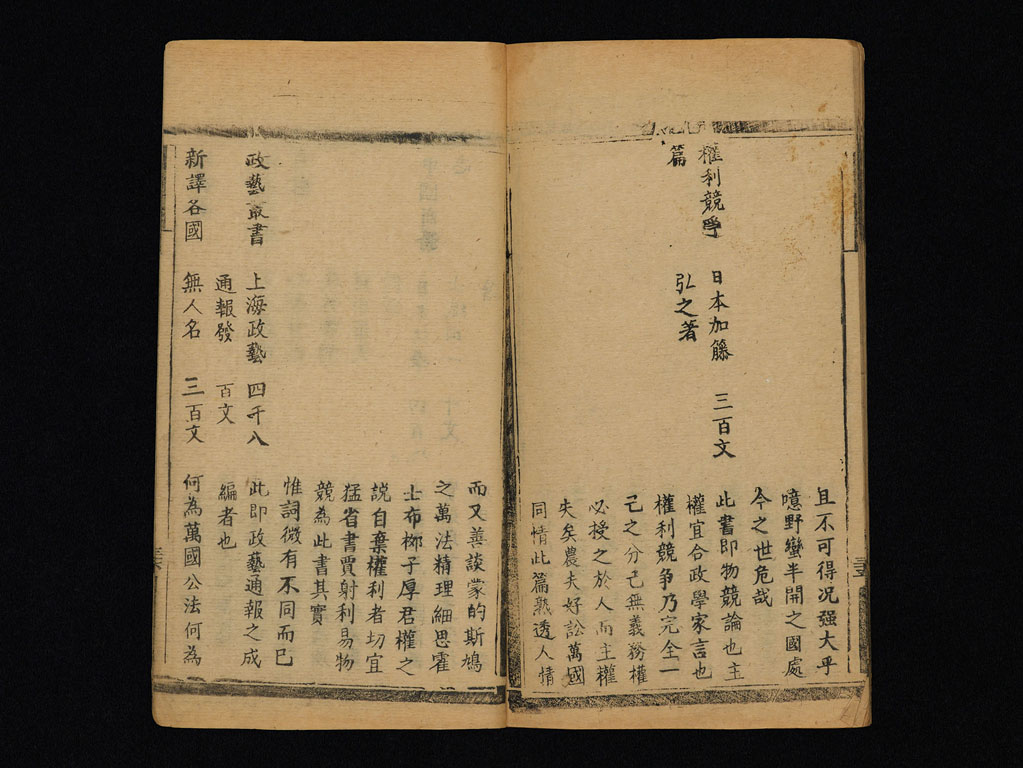 且不可得况强大乎
噫野蠻半開之國處
今之世危哉
權利競爭 日本加籐 三百文 此書即物競論也主
篇 弘之著 權宜合政學家言也
權利競爭乃完全一
己之分己無義務權
必授之於人而主權
失矣農夫好訟萬國
同情此篇熟透人情
而又善談蒙的斯鳩
之萬法精理細思霍
士布栁子厚君權之
説自棄權利者切宜
猛省書賈射利易物
競為此書其實
惟詞微有不同而已
政藝叢書 上海政藝 四千八 此即政藝通報之成
通報發 百文 編者也
新譯各國 無人名 三百文 何為萬國公法何為